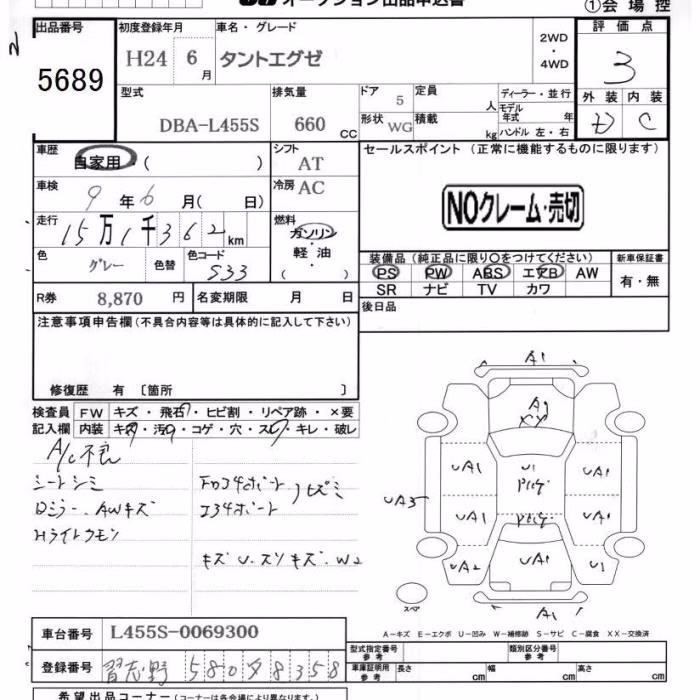 オークション出品申込書
①会場控
出品番号
5689
初度登録年月
H24 6月
車名・グレード
タントエグゼ
2WD
・
4WD
評価点
3
型式
DBA-L455S
排気量
660 CC
ドア
5
定員
人
ディーラー・並行
モデル年式 年
ハンドル 左・右
形状
WG
積載
kg
外装 内装
C
車歴
自家用・( )
シフト
AT
セールスポイント(正常に機能するものに限ります)
NOクレーム・売切
車検
9年6月( 日)
冷房
AC
走行
15万1千362km
燃料
ガソリン
・
軽油
・
( )
色
グレー
色替
色コード
S33
装備品(純正品に限り〇をつけてください)
PS PW ABS エアB AW
SR ナビ TV カワ
新車保証書
有・無
R券
8,870円
名変期限
月 日
後日品
注意事項申告欄(不具合内容等は具体的に記入して下さい)
修復歴 有〔箇所 〕
検査員記入欄
FW キズ・飛石・ヒビ割・リペア跡・×要
内装 キズ・汚・コゲ・穴・スレ・キレ・破レ
A/C不良
シートシミ
Dミラー、AWキズ
Hライトクモン
キズ U.スリキズ.W2
A1
A2
XX
UA1 U1 UA1
UA3
UA1 UA1
UA2 UA1 U1
A1
スペア
A-キズ E-エクボ U-凹み W-補修跡 S-サビ C-腐食 XX-交換済
車台番号
L455S-0069300
登録番号
習志野 580 タ 8358
型式指定番号 参考
類別区分番号 参考
車庫証明用 参考
長さ cm
幅 cm
高さ cm
希望出品コーナー(コーナーは各会場により異なります。)